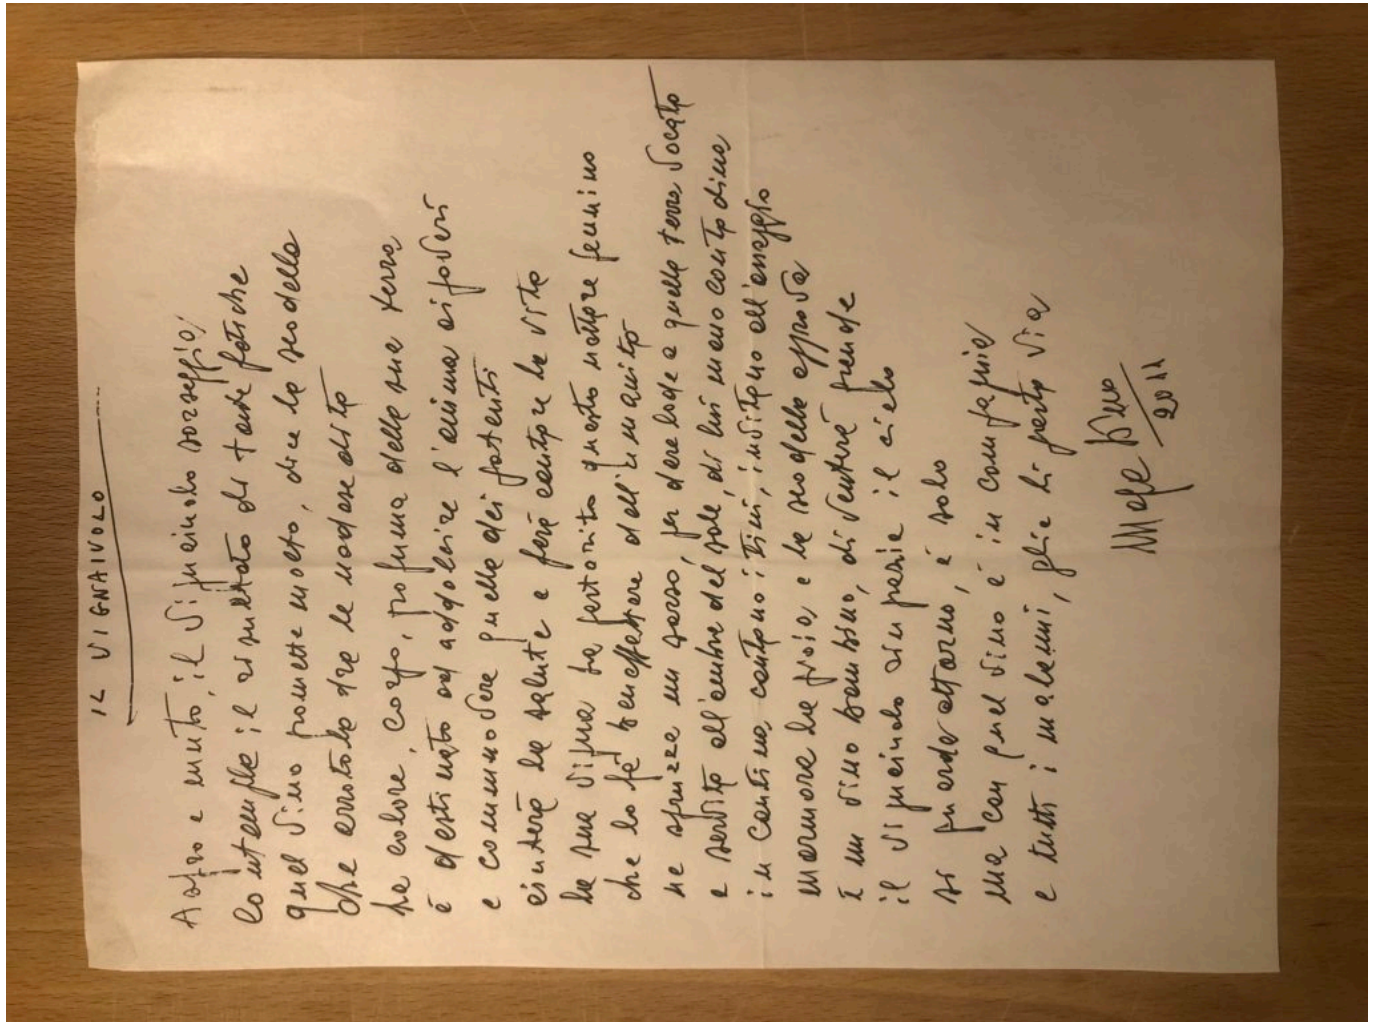 IL VIGNAIVOLO
Aspro e muto, il vignaiolo sorseggia,
contempla il risultato di tante fatiche
quel vino promette molto, dice la scodella
che arrotola tra le nodose dita
ha colore, corpo, profuma della sua terra
é destinato ad addolcire l'anima ai poveri
e commuovere quella dei potenti
aiuterà la salute e farà cantare la vita
la sua vigna ha partorito questo nettare
che lo fa benefattore dell'umanità
ne spruzza un sorso, per dare lode a quella terra vocata
e servita all'ombra del sole, di lui mano contadina
in cantina contano i tini, invitano all'assaggio
mormora la gioia, e la scodella approva
È un vino bambino, diventerà grande
il vignaiolo ringrazia il cielo
si guarda attorno, é solo
ma con quel vino é in compagnia
e tutti i malanni, glie li porta via
2011